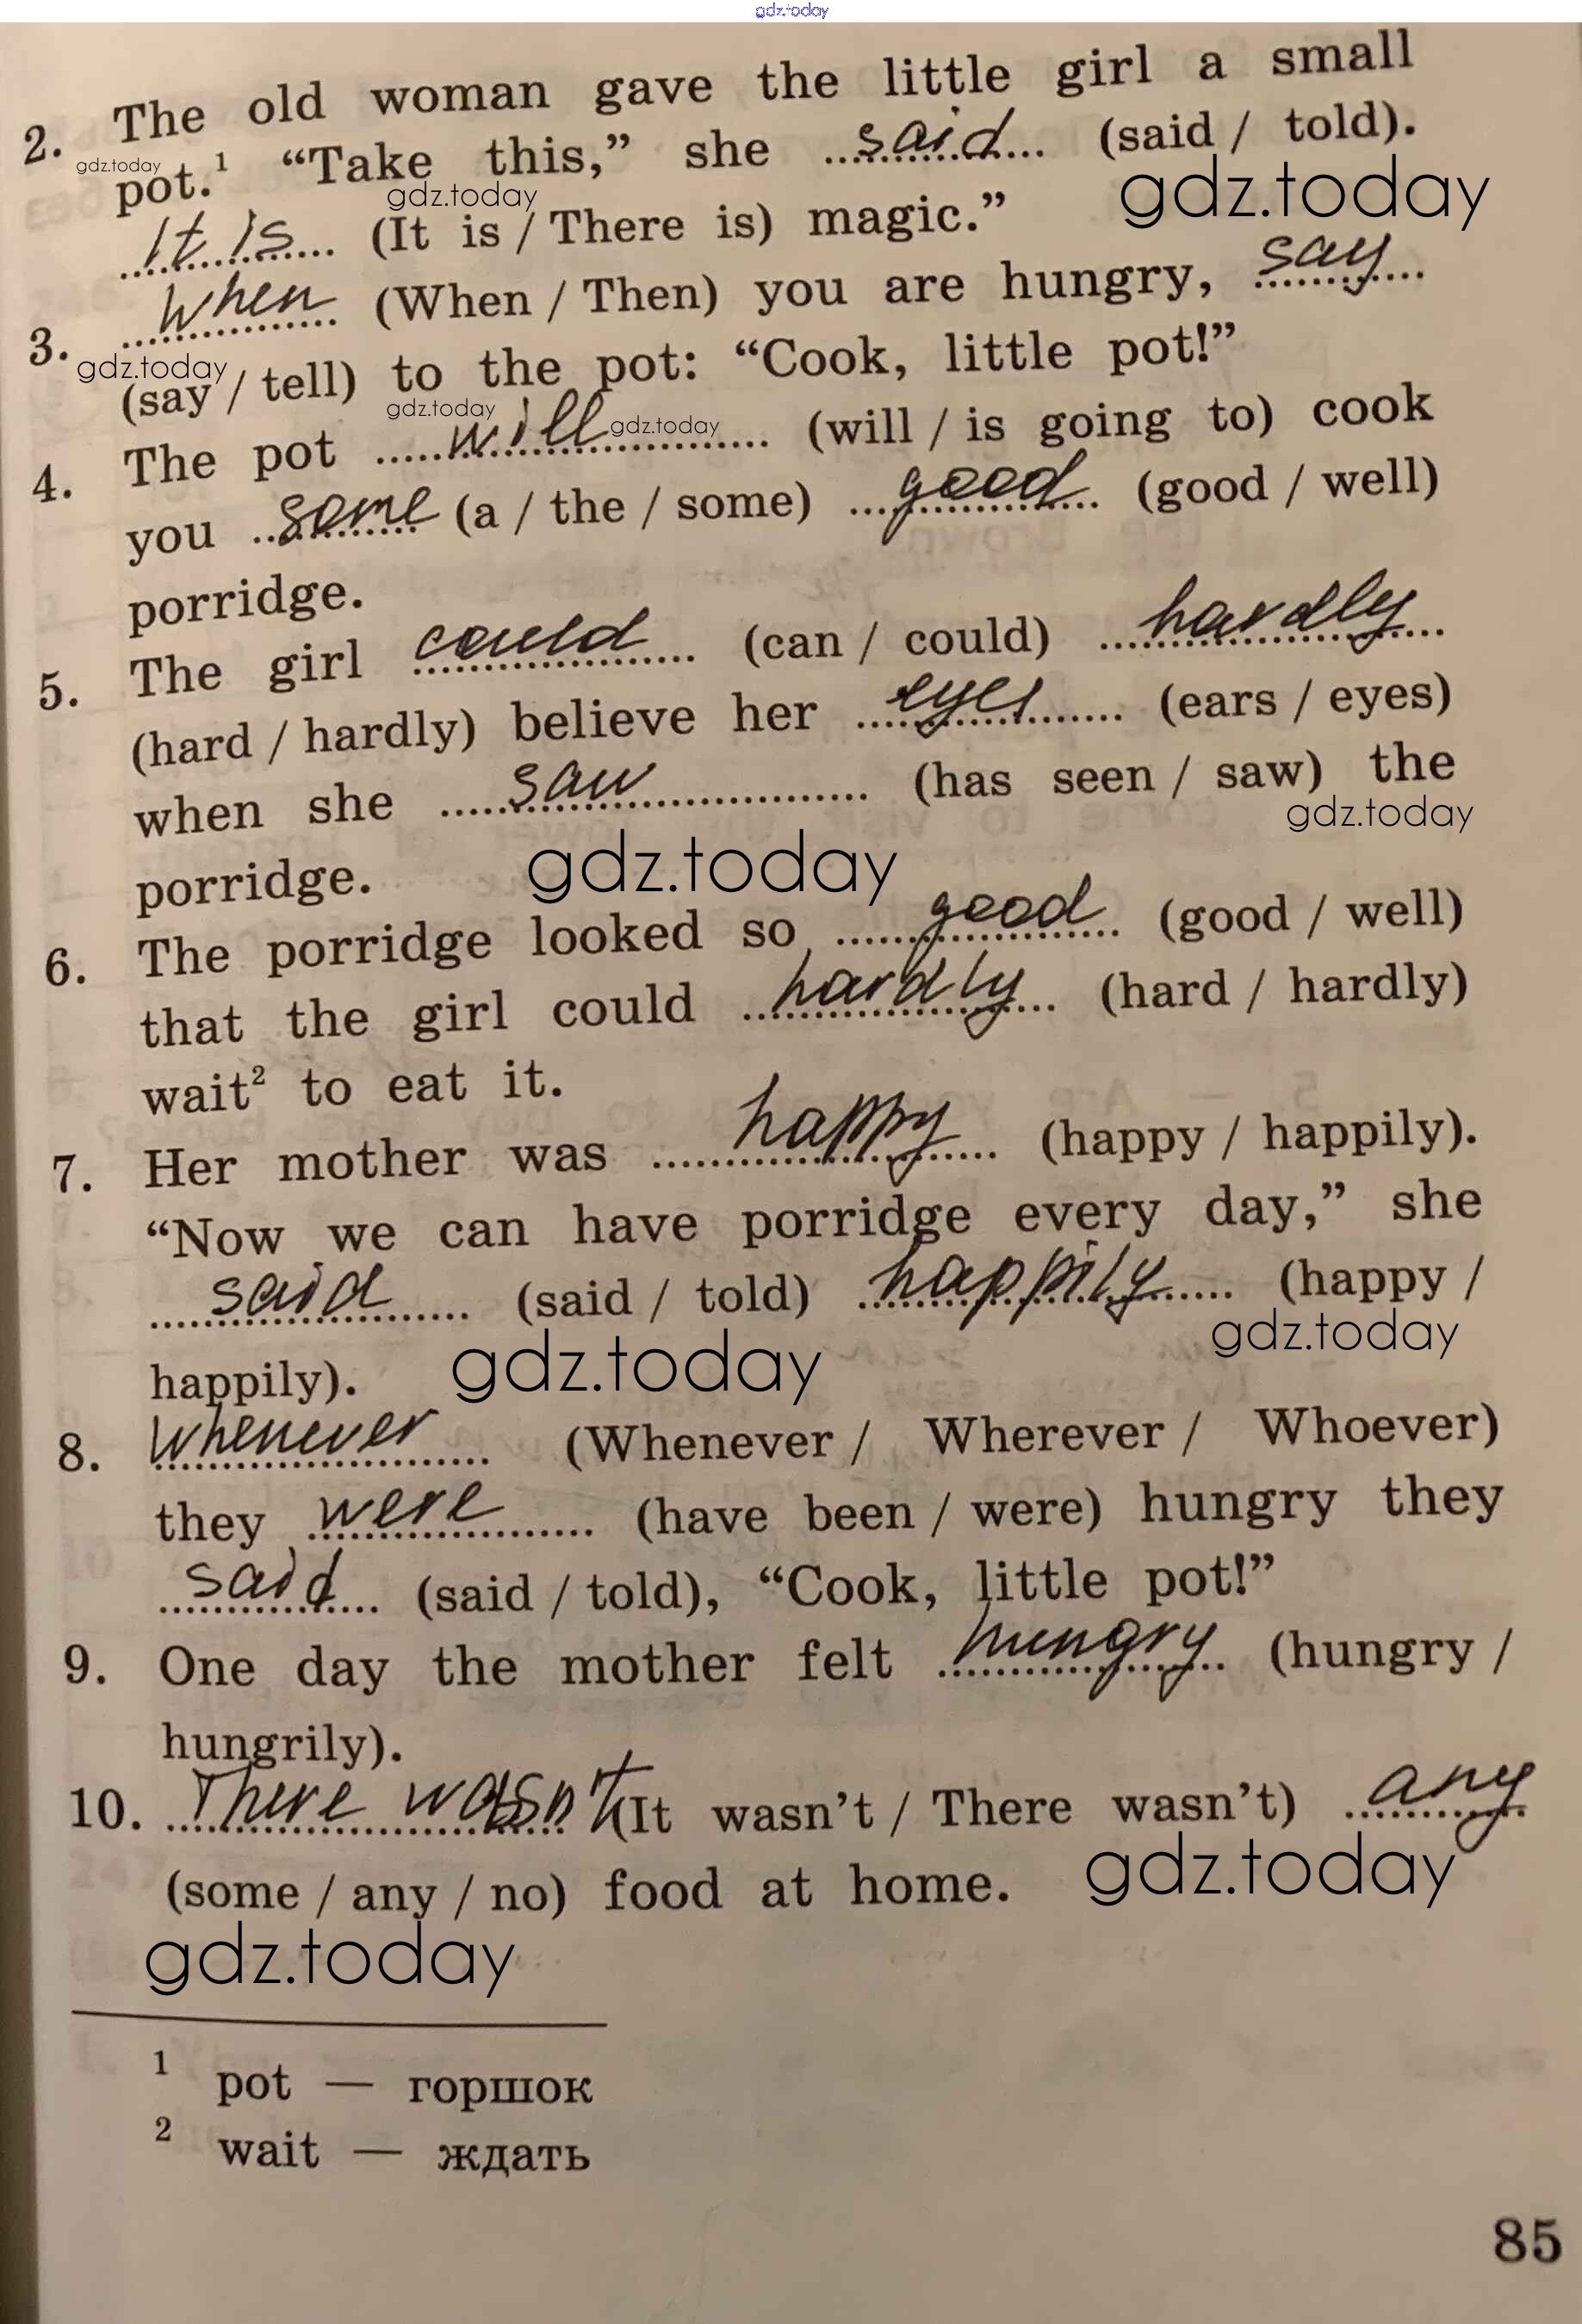 gdz.today
2. The old woman gave the little girl a small
pot.¹ “Take this,” she said (said / told).
gdz.today
gdz.today
gdz.today
It is (It is / There is) magic.”
3. When (When / Then) you are hungry, say
gdz.today
(say / tell) to the pot: “Cook, little pot!”
gdz.today
gdz.today
4. The pot will (will / is going to) cook
you some (a / the / some) good (good / well)
porridge.
5. The girl could (can / could) hardly
(hard / hardly) believe her eyes (ears / eyes)
when she saw (has seen / saw) the
gdz.today
porridge.
gdz.today
6. The porridge looked so good (good / well)
that the girl could hardly (hard / hardly)
wait² to eat it.
7. Her mother was happy (happy / happily).
“Now we can have porridge every day,” she
said (said / told) happily (happy /
gdz.today
happily).
gdz.today
8. Whenever (Whenever / Wherever / Whoever)
they were (have been / were) hungry they
said (said / told), “Cook, little pot!”
9. One day the mother felt hungry (hungry /
hungrily).
10. There wasn't (It wasn’t / There wasn’t) any
(some / any / no) food at home.
gdz.today
gdz.today
¹ pot — горшок
² wait — ждать
85